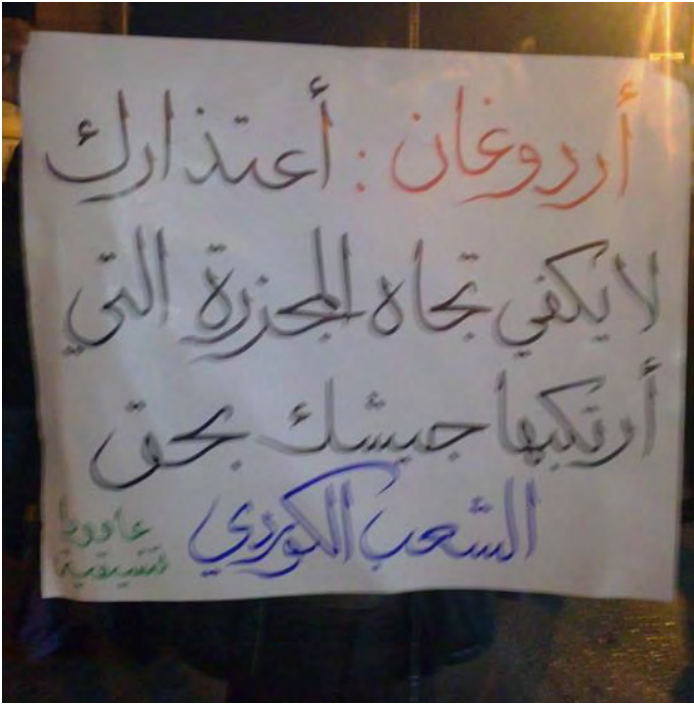 أردوغان : أعتذارك
لا يكفي تجاه المجزرة التي
أرتكبها جيشك بحق
الشعب الكوردي
تنسيقية